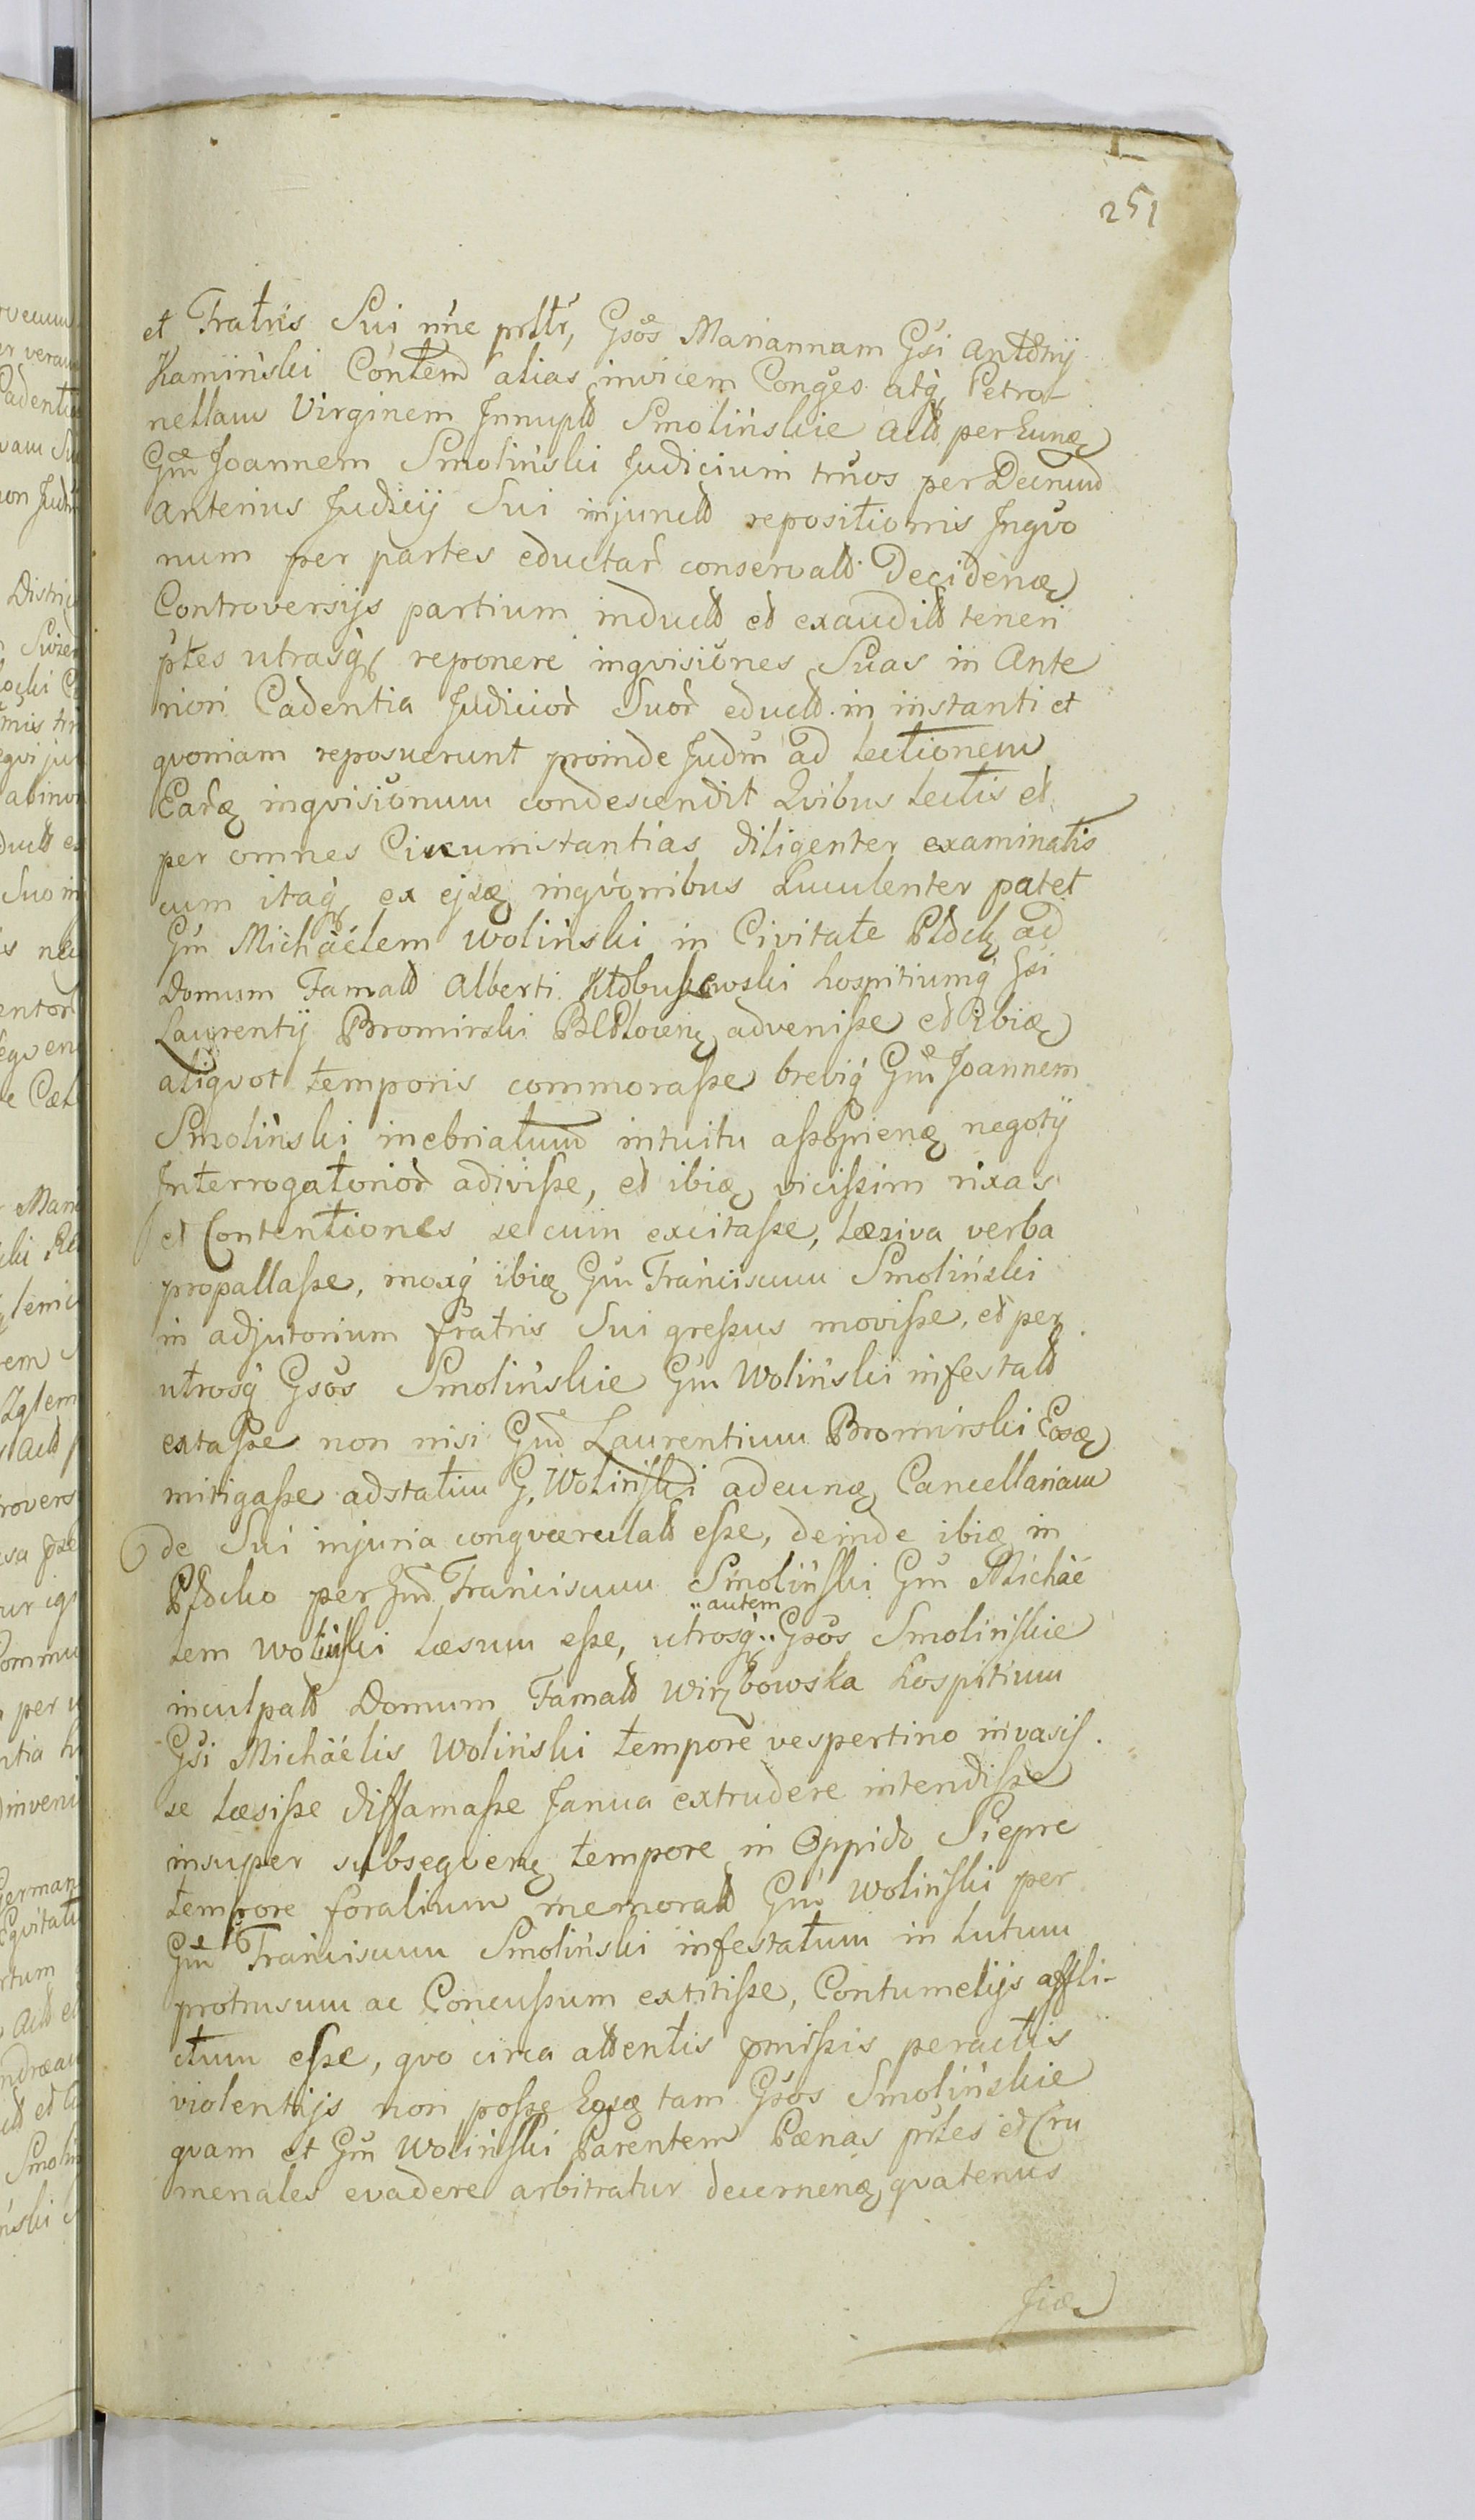 251
et Fratris Sui nne prttr, Gsos Mariannam Gsi Antonij
Kaminski Contem alias invicem Conges atq Petro-
nellam Virginem Innupta Smolinskie actt per Eunq
Gm Joannem Smolinski Judicium truos per Decretum
anterius Judicij Sui injunctt repositionis Inqvo
num per partes eductar conservatt Decidenq
Controversijs partium inductt et exauditt teneri
ptes utrasq reponere inqvisiones Suas in Ante
riori Cadentia Judicior Suor eductt in instanti et
qvoniam reposuerunt proinde Judm ad lectionem
Earq inqvisionum condescendit Qvibus lectis et
per omnes Circumstantias diligenter examinatis
cum itaq ex ejsq inqvonibus Luculenter patet
Gm Michäelem Wolinski in Civitate Plock ad
Domum Famatt Alberti Kłobuszewski hospitiumq Gsi
Laurentij Bromirski advenisse et Ibiq
aliqvot temporis commorasse breviq Gm Joannem
Smolinski inebriatum intuitu assopienq negotij
Interrogatorior adivisse, et ibiq vicissim rixas
et Contentiones secum excitasse, læsiva verba
propallasse, moxq ibiq Gm Franciscum Smolinski
in adjutorium fratris Sui gressus movisse, et per
utrosq Gsos Smolinskie Gm Wolinski infestatt
extasse non nisi Gm Laurentium Bromirski Eosq
mitigasse adstatim G. Wolinski adeunq Cancellariam
de Sui injuria conqværulatt esse, deinde ibiq in
Płocko per Gm Franciscum Smolinski Gm Michäe
lem Wolinski læsum esse, utrosq autem Gsos Smolinskie
inculpatt Domum Famatt Wirzbowska hospitium
Gsi Michäelis Wolinski tempore vespertino invasis.
se læsisse diffamasse Janua extrudere intendisse
insuper subseqvenq tempore in Oppido Siepre
tempore foralium memoratt Gm Wolinski per
Gm Franciscum Smolinski infestatum in lutum
protrusum ac Concussum extitisse, Contumelijs affli-
ctum esse, qvo circa attentis pmissis peractis
violentijs non posse Eosq tam Gsos Smolinskie
qvam et Gm Wolinski Parentem Pænas ptles et Cru
menales evadere arbitratur decernenq qvatenus